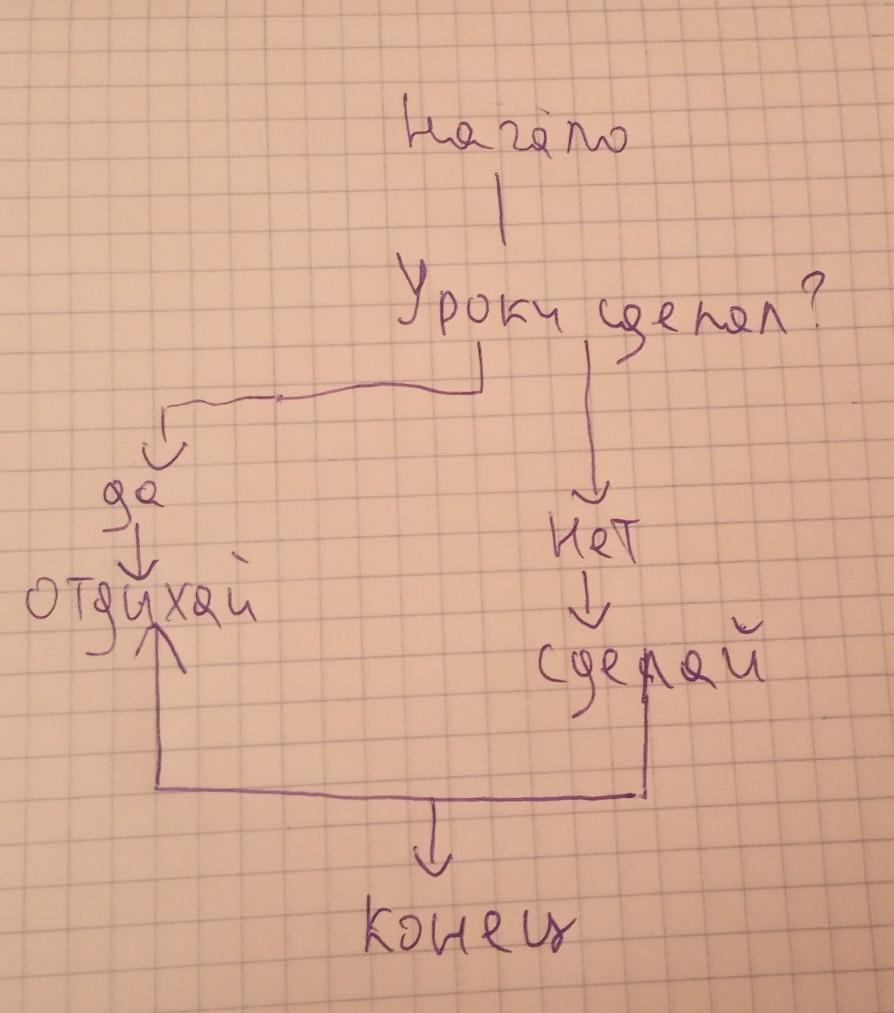 Начало
Уроки сделал?
да
Нет
отдихай
сделай
конец